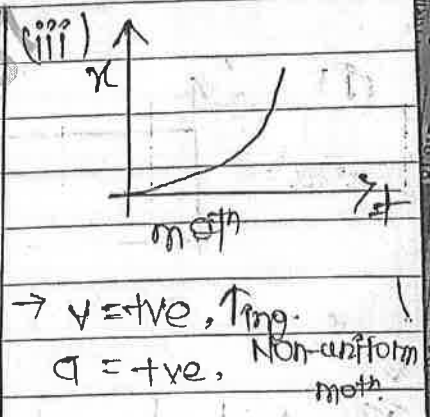 (iii)
x
t
moth
→ v = +ve, ↑ing.
a = +ve, Non-uniform
moth.